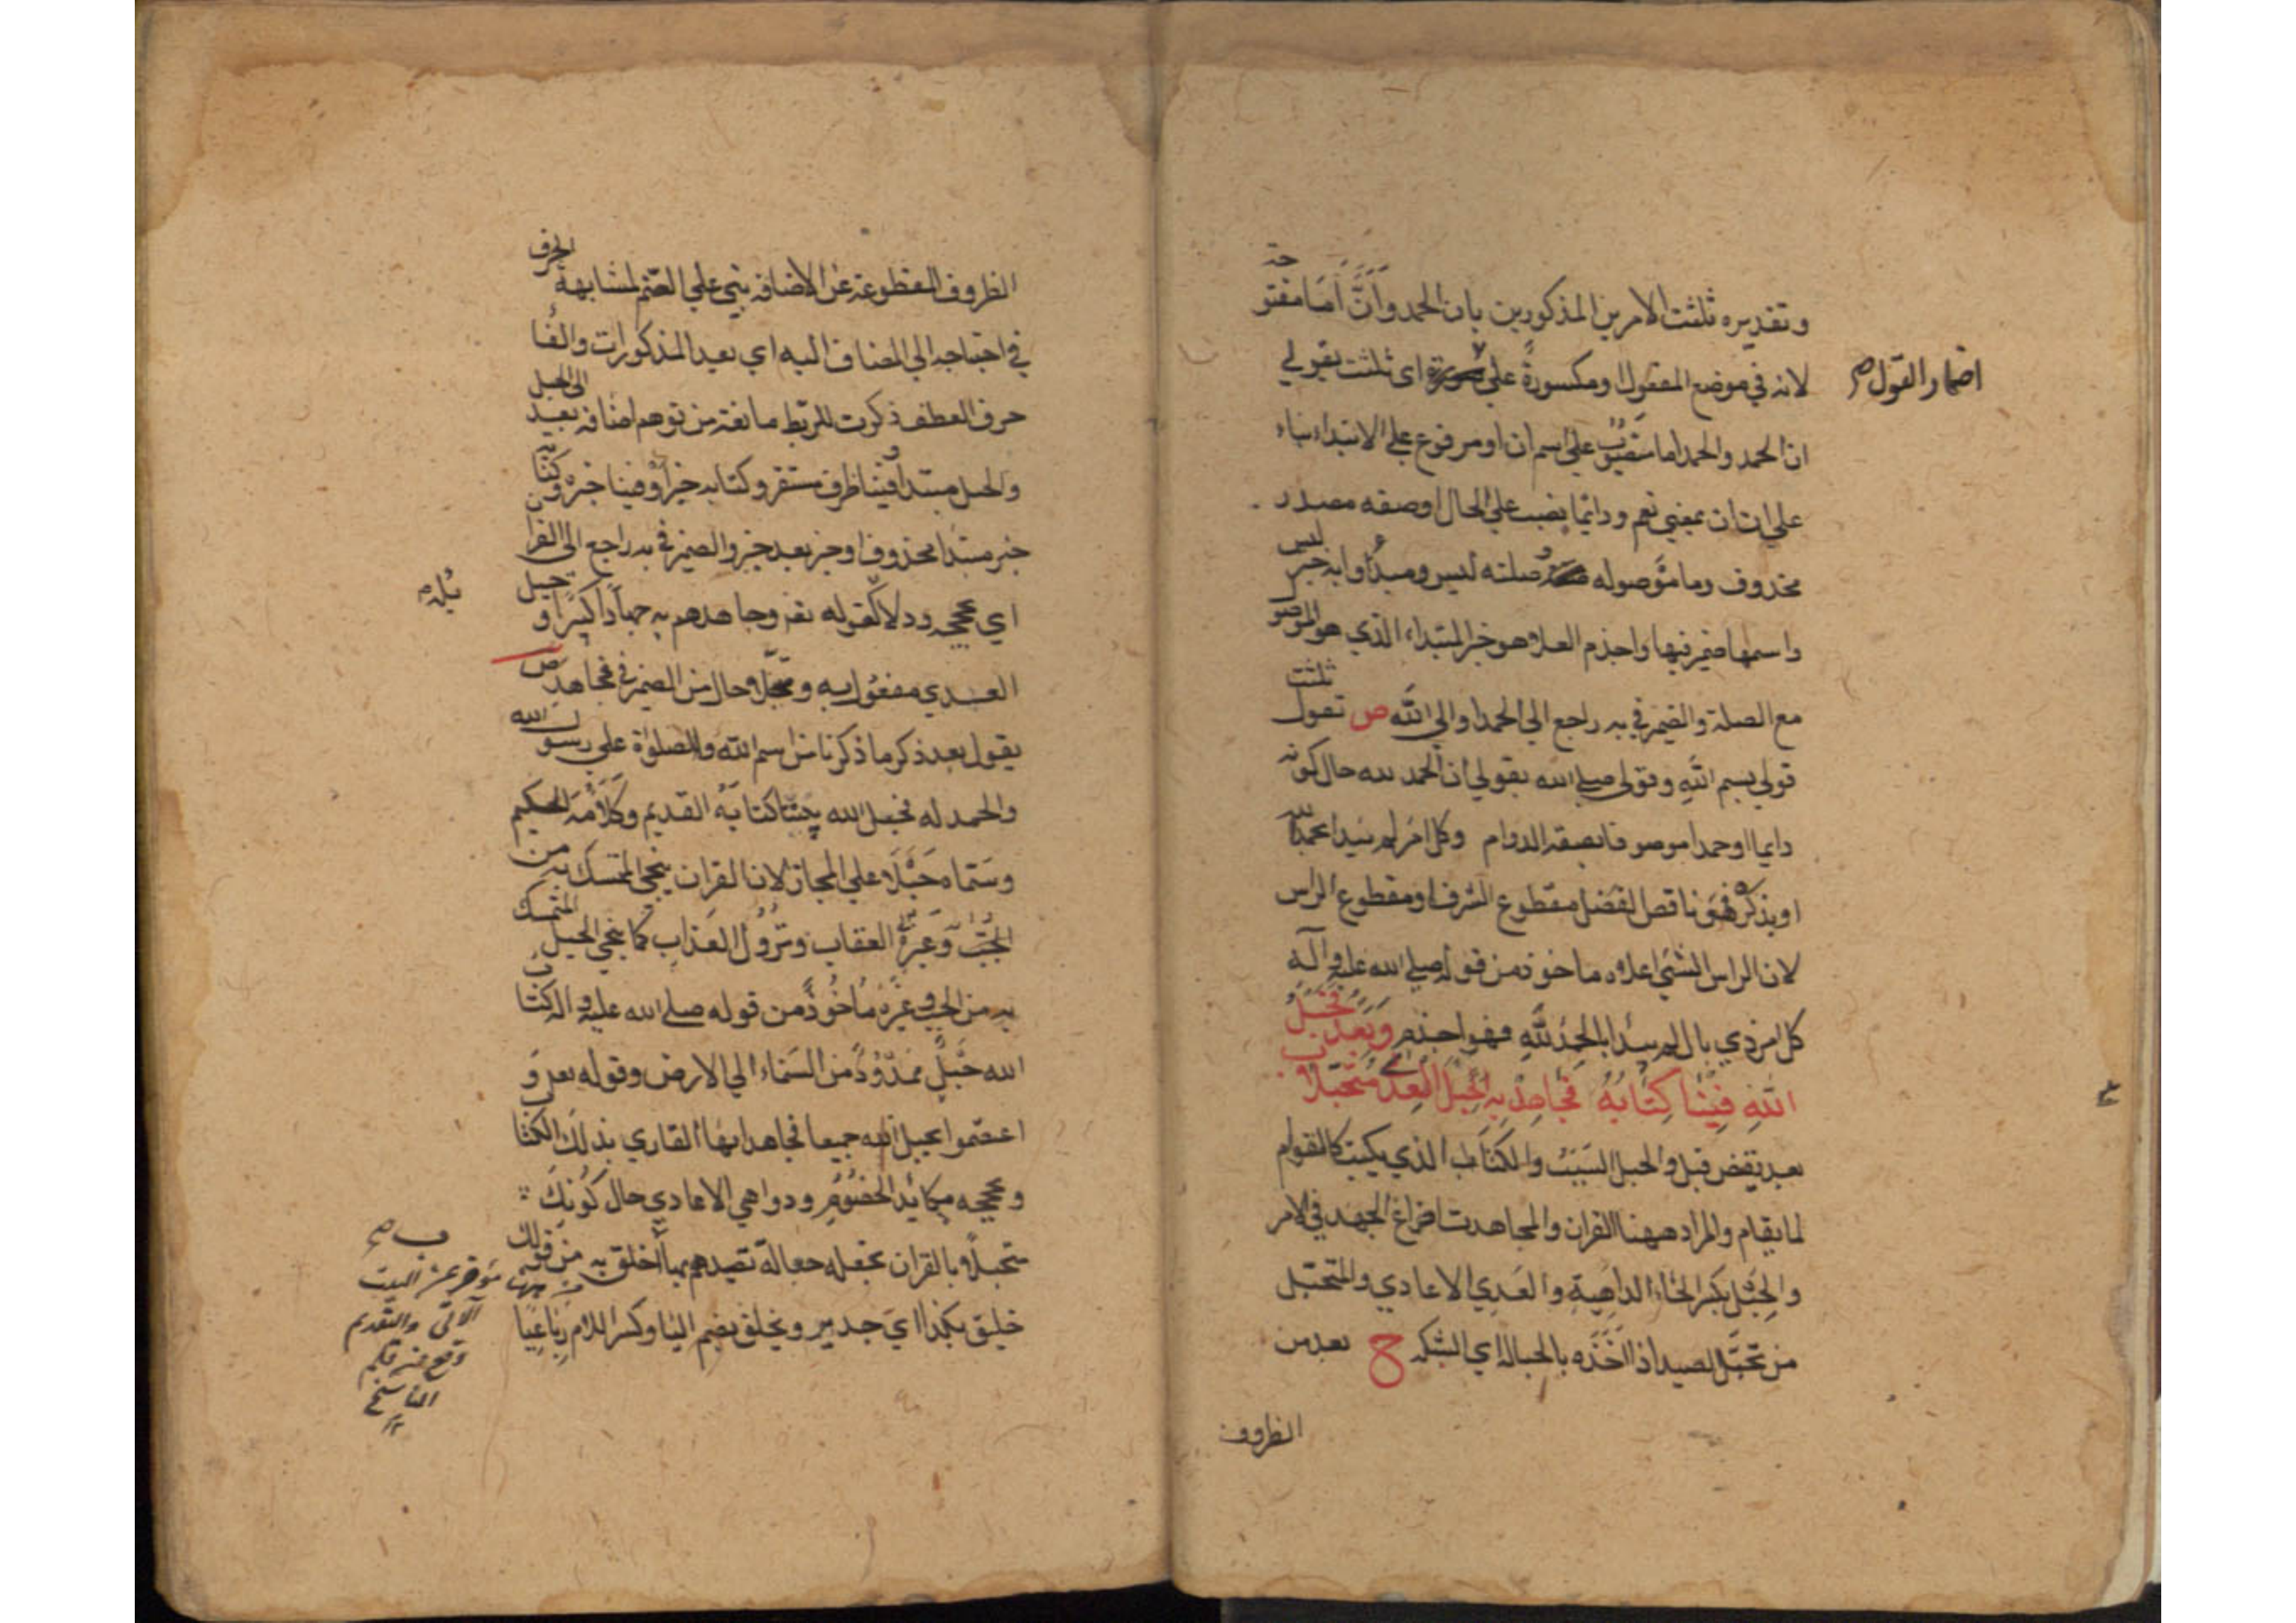 وتقديره ثلثت الامرين المذكورين بان الحمد وأنَّ أما مفتوحة
لانه في موضع المفعول او مكسورة على اى ثلثت بقولي
اضمار القول صح
ان الحمد والحمد اما على اسم ان او مرفوع على الابتداء بناء
على ان ان بمعنى نعم ودايما نصب على الحال او صفه مصدر
محذوف وما موصوله صلته ليس ومبدأ وابه خبر ليس
واسمها ضمير فيها واجذم العلا هو خبر المبتداء الذي هو الموصو
مع الصلة والضمير في به راجع الى الحمد او الى الله ص تقول ثلثت
قولي بسم الله وقولي صلى الله بقولي ان الحمد لله حال كونه
دايما او حمدا موصوفا بصفة الدوام وكل امر لم يبدا بحمد الله
او بذكره فهو ناقص الفضل مقطوع الشرف او مقطوع الراس
لان الراس الشئ اعلاه ماخوذ من قوله صلى الله عليه وآله
كل امر ذي بال لم يبدا بالحمد لله فهو اجذم وبعد فحبل
الله فينا كتابه فجاهد به حبل العدى متحبلا
بعد نقيض قبل والحبل السبب والكتاب الذي يكتب كالقوام
لما يقام والمراد ههنا القران والمجاهدت افراغ الجهد في الامر
والحبل بكسر الحاء الداهية والعدى الاعادي والمتحبل
من تحبل الصيد اذا اخذه بالحبالة اي الشبكه ح بعد من
الظروف
الظروف المقطوعة عن الاضافه بني على الضم لمشابهة الحرف
في احتياجه الى المضاف اليه اي بعد المذكورات والفا
حرف العطف ذكرت للربط مانعة من توهم اضافه بعد الى الحبل
والحبل مبتدا وفينا ظرف مستقر وكتابه خبر او فينا خبره وكتابه
خبر مبتدا محذوف او خبر بعد خبر والضمير في به راجع الى القرا
اي بحججه ودلائله كقوله تعر وجاهدهم به جهاداً كبيراً وحبل
العدى مفعول به ومتحبلا حال من الضمير في فجاهد ص
يقول بعد ذكر ما ذكرنا من اسم الله والصلوة على رسول الله
والحمد له فحبل الله بيننا كتابه القديم وكلامه الحكيم
وسماه حبلا على المجاز لان القران ينجي المتمسك به من
الجب وغيره العقاب ونزول العذاب كما ينجي الحبل المتمسك
به من الجب وغيره ماخوذ من قوله صلى الله عليه واله كتاب
الله حبل ممدود من السماء الى الارض وقوله تعر و
اعتصموا بحبل الله جميعا فجاهد ايها القاري بذلك الكتاب
وبحججه مكائد الخصوم ودواهي الاعادي حال كونك
متحبلا بالقران بجعله حبالة تصيدهم بها أخلق به من قولك
خليق بكذا اي جدير ويخلق بضم اليا وكسر اللام رباعيا
من ههنا موخر عن البيت
الآتى والتقديم
وقع من قلم
الناسخ
١٢